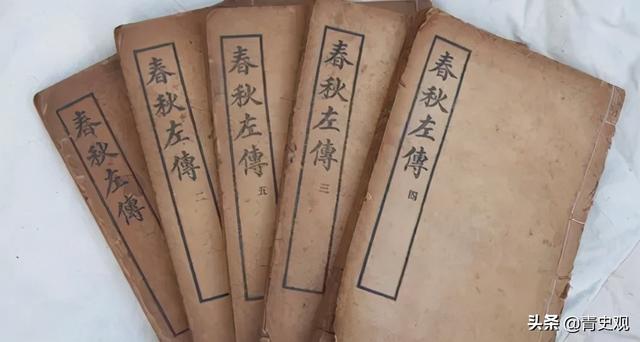 春秋左傳
春秋左傳
二
春秋左傳
五
春秋左傳
三
春秋左傳
四
头条 @青史观